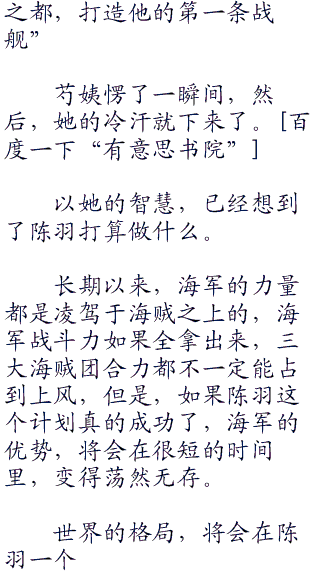 之都，打造他的第一条战
舰”
芍姨愣了一瞬间，然
后，她的冷汗就下来了。[百
度一下“有意思书院”]
以她的智慧，已经想到
了陈羽打算做什么。
长期以来，海军的力量
都是凌驾于海贼之上的，海
军战斗力如果全拿出来，三
大海贼团合力都不一定能占
到上风，但是，如果陈羽这
个计划真的成功了，海军的
优势，将会在很短的时间
里，变得荡然无存。
世界的格局，将会在陈
羽一个